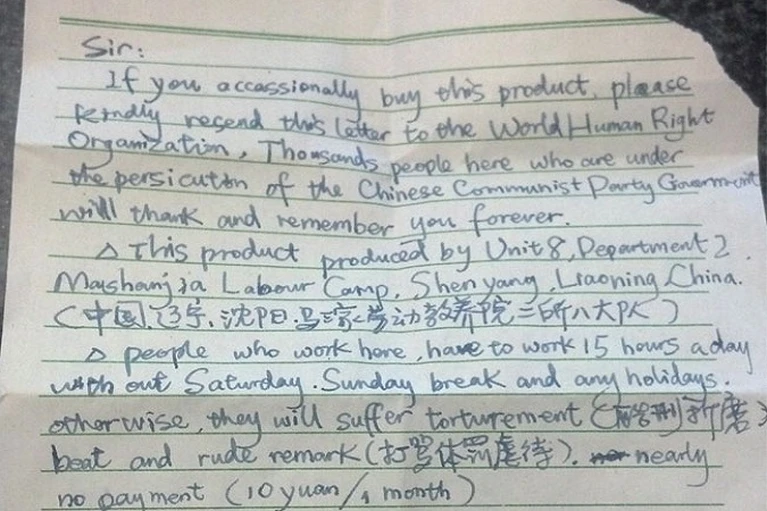 Sir:
If you occassionally buy this product, please
kindly resend this letter to the World Human Right
Organization, Thousands people here who are under
the persicution of the Chinese Communist Party Government
will thank and remember you forever.
△ This product produced by Unit 8, Department 2.
Mashanjia Labour Camp, Shenyang, Liaoning, China.
(中国.辽宁.沈阳.马三家劳动教养院二所八大队)
△ people who work here, have to work 15 hours a day
with out Saturday. Sunday break and any holidays.
otherwise, they will suffer torturement (酷刑折磨)
beat and rude remark (打骂体罚虐待). nearly
no payment (10 yuan/1 month)